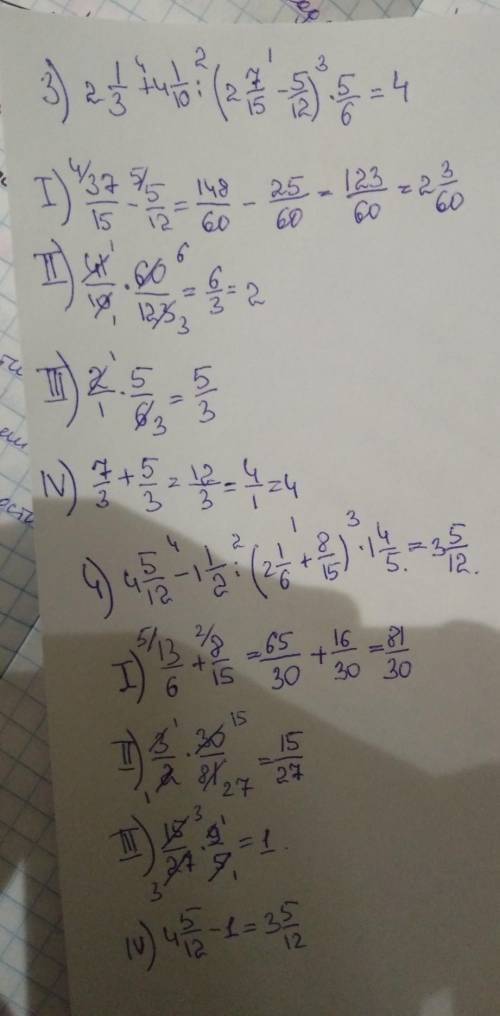 3) 2 1/3 +⁴ 4 1/10 :² (2 7/15 -¹ 5/12) ·³ 5/6 = 4
I) ⁴/37/15 - ⁵/5/12 = 148/60 - 25/60 = 123/60 = 2 3/60
II) 41¹/10₁ · 60⁶/123₃ = 6/3 = 2
III) 2¹/1 · 5/6₃ = 5/3
IV) 7/3 + 5/3 = 12/3 = 4/1 = 4
4) 4 5/12 -⁴ 1 1/2 :² (2 1/6 +¹ 8/15) ·³ 1 4/5 = 3 5/12.
I) ⁵/13/6 + ²/8/15 = 65/30 + 16/30 = 81/30
II) 3¹/2₁ · 30¹⁵/81₂₇ = 15/27
III) 15³/27₃ · 9¹/5₁ = 1.
IV) 4 5/12 - 1 = 3 5/12